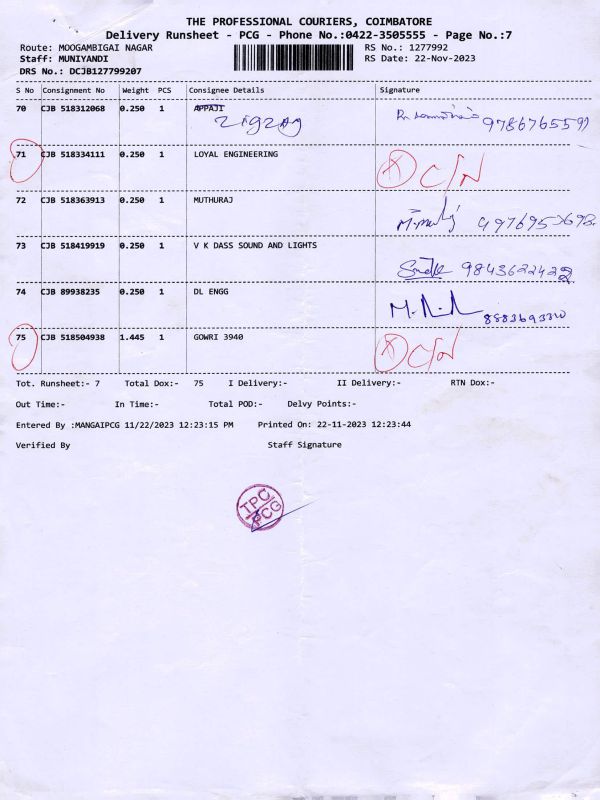 THE PROFESSIONAL COURIERS, COIMBATORE
Delivery Runsheet - PCG - Phone No.:0422-3505555 - Page No.:7
Route: MOOGAMBIGAI NAGAR RS No.: 1277992
Staff: MUNIYANDI RS Date: 22-Nov-2023
DRS No.: DCJB127799207
S No Consignment No Weight PCS Consignee Details Signature
70 CJB 518312068 0.250 1 APPAJI
zigzag 9786765591
71 CJB 518334111 0.250 1 LOYAL ENGINEERING
C/N
72 CJB 518363913 0.250 1 MUTHURAJ
73 CJB 518419919 0.250 1 V K DASS SOUND AND LIGHTS
9843622422
74 CJB 89938235 0.250 1 DL ENGG
75 CJB 518504938 1.445 1 GOWRI 3940
C/N
Tot. Runsheet:- 7 Total Dox:- 75 I Delivery:- II Delivery:- RTN Dox:-
Out Time:- In Time:- Total POD:- Delvy Points:-
Entered By :MANGAIPCG 11/22/2023 12:23:15 PM Printed On: 22-11-2023 12:23:44
Verified By Staff Signature
TPC
PCG